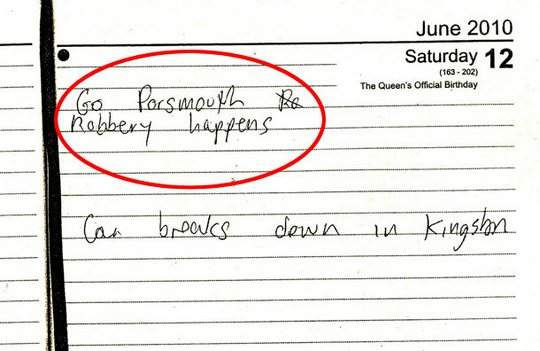 June 2010
Saturday 12
(163 - 202)
The Queen's Official Birthday
Go Porsmouth Ro
Robbery happens
Car breaks down in Kingston